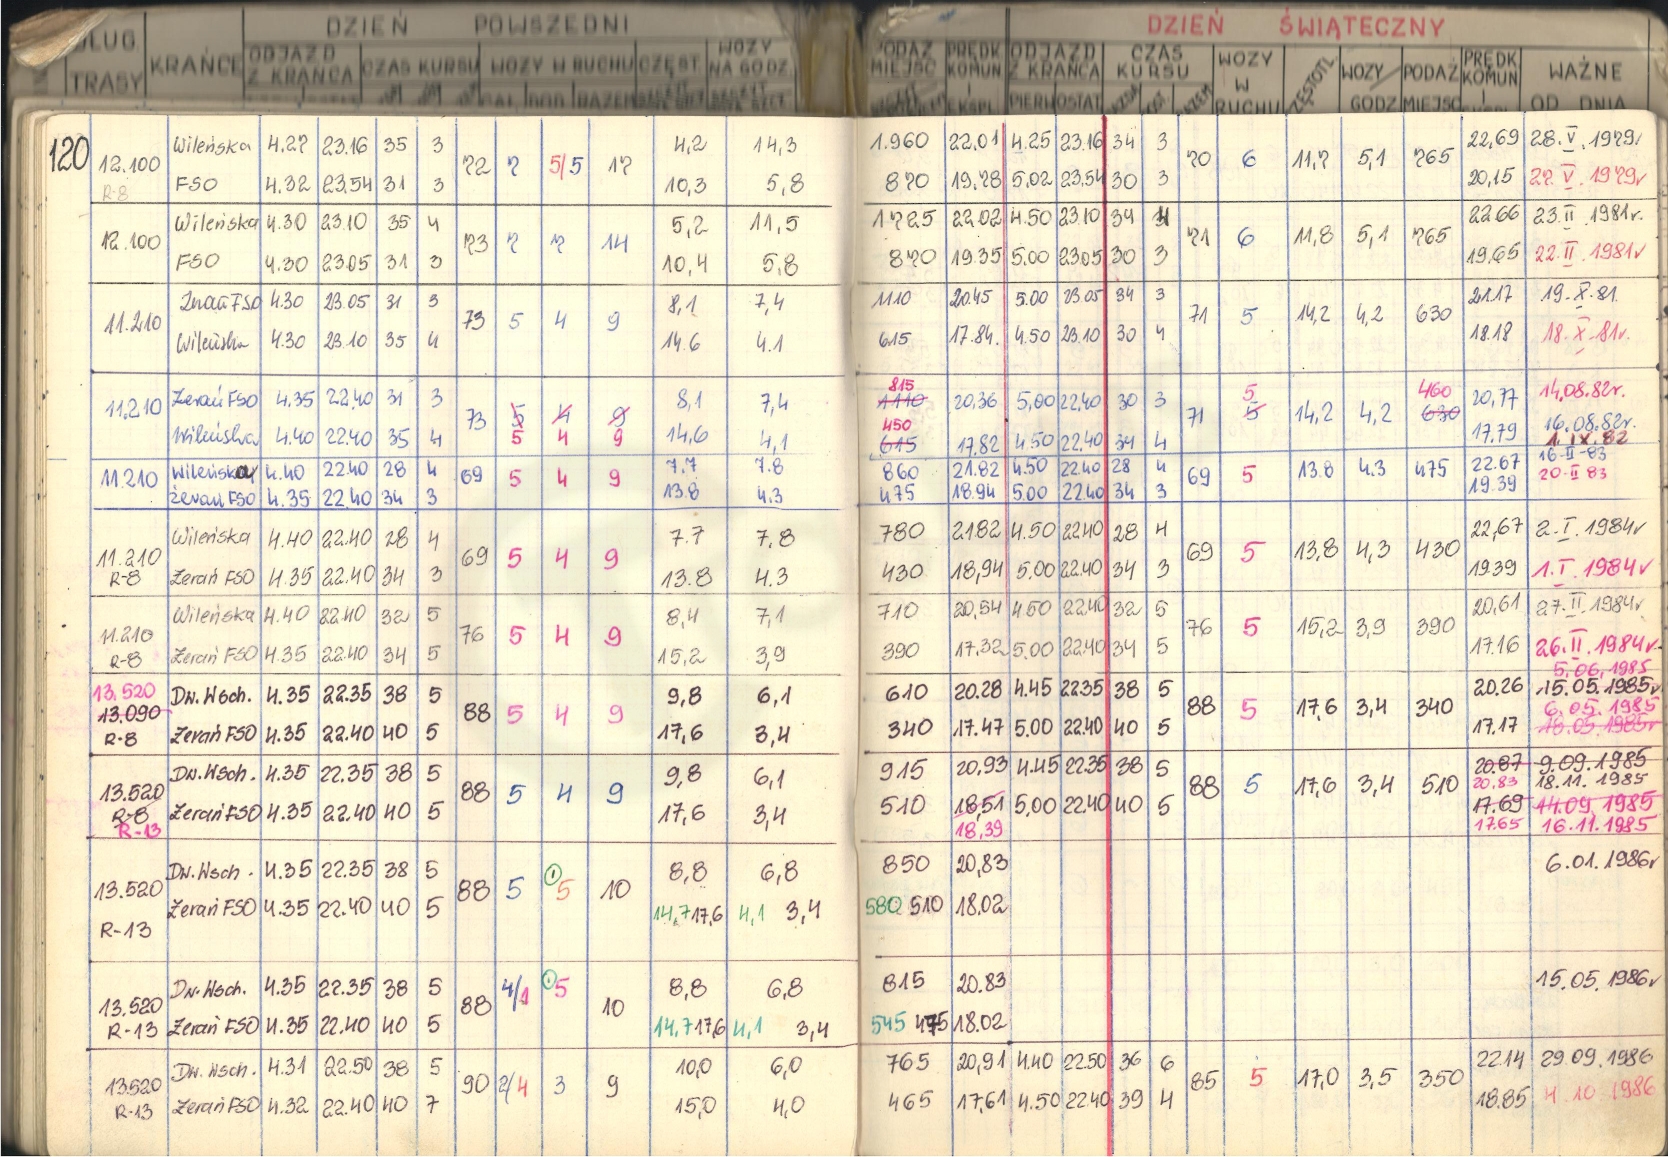 DZIEŃ POWSZEDNI
DŁUG. TRASY KRAŃCE ODJAZD Z KRAŃCA CZAS KURSU WOZY W RUCHU CZĘST. WOZY NA GODZ.
DZIEŃ ŚWIĄTECZNY
PODAŻ MIEJSC PRĘDK KOMUN I EKSPL. ODJAZD Z KRAŃCA CZAS KURSU WOZY W RUCHU CZĘSTOTL WOZY GODZ PODAŻ MIEJSC PRĘDK KOMUN I WAŻNE OD DNIA
PIERW OSTAT.
120
Wileńska 4.27 23.16 35 3 4,2 14,3 1.960 22,01 4.25 23.16 34 3 22,69 28.V.1979r
12.100 72 7 5/5 17 70 6 11,7 5,1 765
R-8 FSO 4.32 23.54 31 3 10,3 5,8 870 19,78 5.02 23.54 30 3 20,15 27.V.1979r
Wileńska 4.30 23.10 35 4 5,2 11,5 1725 22.02 4.50 23.10 34 4 22.66 23.II.1981r.
12.100 73 7 7 14 71 6 11,8 5,1 765
FSO 4.30 23.05 31 3 10,4 5,8 870 19.35 5.00 23.05 30 3 19,65 22.II.1981r
FSO 4.30 23.05 31 3 8,1 7,4 1110 20.45 5.00 23.05 34 3 21.17 19.X.81.
11.210 73 5 4 9 71 5 14,2 4,2 630
Wileńska 4.30 23.10 35 4 14.6 4.1 615 17.84. 4.50 23.10 30 4 18.18 18.X.81r.
815 5 460
Żerań FSO 4.35 22.40 31 3 8,1 7,4 1110 20,36 5,00 22,40 30 3 20,77 14,08.82r.
11.210 73 5 4 9 71 5 14,2 4,2 630
450 16.08.82r.
Wileńska 4.40 22.40 35 4 5 4 9 14,6 4,1 615 17.82 4.50 22,40 34 4 17.79 1.IX.82
Wileńska 4.40 22.40 28 4 7.7 7.8 860 21.82 4.50 22.40 28 4 22.67 16-II-83
11.210 69 5 4 9 69 5 13.8 4.3 475
Żerań FSO 4.35 22.40 34 3 13.8 4.3 475 18.94 5.00 22.40 34 3 19.39 20-II 83
Wileńska 4.40 22.40 28 4 7.7 7.8 780 21.82 4.50 22.40 28 4 22,67 2.I.1984r
11.210 69 5 4 9 69 5 13,8 4,3 430
R-8 Żerań FSO 4.35 22.40 34 3 13.8 4.3 430 18,94 5.00 22.40 34 3 19.39 1.I.1984r
Wileńska 4.40 22.40 32 5 8,4 7,1 710 20,54 4.50 22.40 32 5 20,61 27.II.1984r
11.210 76 5 4 9 76 5 15,2 3,9 390
R-8 Żerań FSO 4.35 22.40 34 5 15,2 3,9 390 17.32 5.00 22.40 34 5 17.16 26.II.1984r
5.06.1985
13.520 Dw. Wsch. 4.35 22.35 38 5 9,8 6,1 610 20.28 4.45 22.35 38 5 20.26 15.05.1985r
13.090 88 5 4 9 88 5 17,6 3,4 340 6.05.1985
R-8 Żerań FSO 4.35 22.40 40 5 17,6 3,4 340 17.47 5.00 22.40 40 5 17.17
Dw. Wsch. 4.35 22.35 38 5 9,8 6,1 915 20,93 4.45 22.35 38 5 20.87 9.09.1985
13.520 88 5 4 9 88 5 17,6 3,4 510 20,83 18.11.1985
R-8 Żerań FSO 4.35 22.40 40 5 17,6 3,4 510 18,51 5,00 22.40 40 5 17.69 14.09.1985
R-13 18,39 17.65 16.11.1985
Dw. Wsch. 4.35 22.35 38 5 8,8 6,8 850 20,83 6.01.1986r
13.520 88 5 ① 5 10
Żerań FSO 4.35 22.40 40 5 14,7 17,6 4,1 3,4 580 510 18.02
R-13
Dw. Wsch. 4.35 22.35 38 5 8,8 6,8 815 20.83 15.05.1986r
13.520 88 4/1 ① 5 10
R-13 Żerań FSO 4.35 22.40 40 5 14,7 17,6 4,1 3,4 545 475 18.02
Dw. Wsch. 4.31 22.50 38 5 10,0 6,0 765 20,91 4.40 22.50 36 6 22.14 29.09.1986
13520 90 2/4 3 9 85 5 17,0 3,5 350
R-13 Żerań FSO 4.32 22.40 40 7 15,0 4,0 465 17,61 4.50 22.40 39 4 18.85 4.10 1986